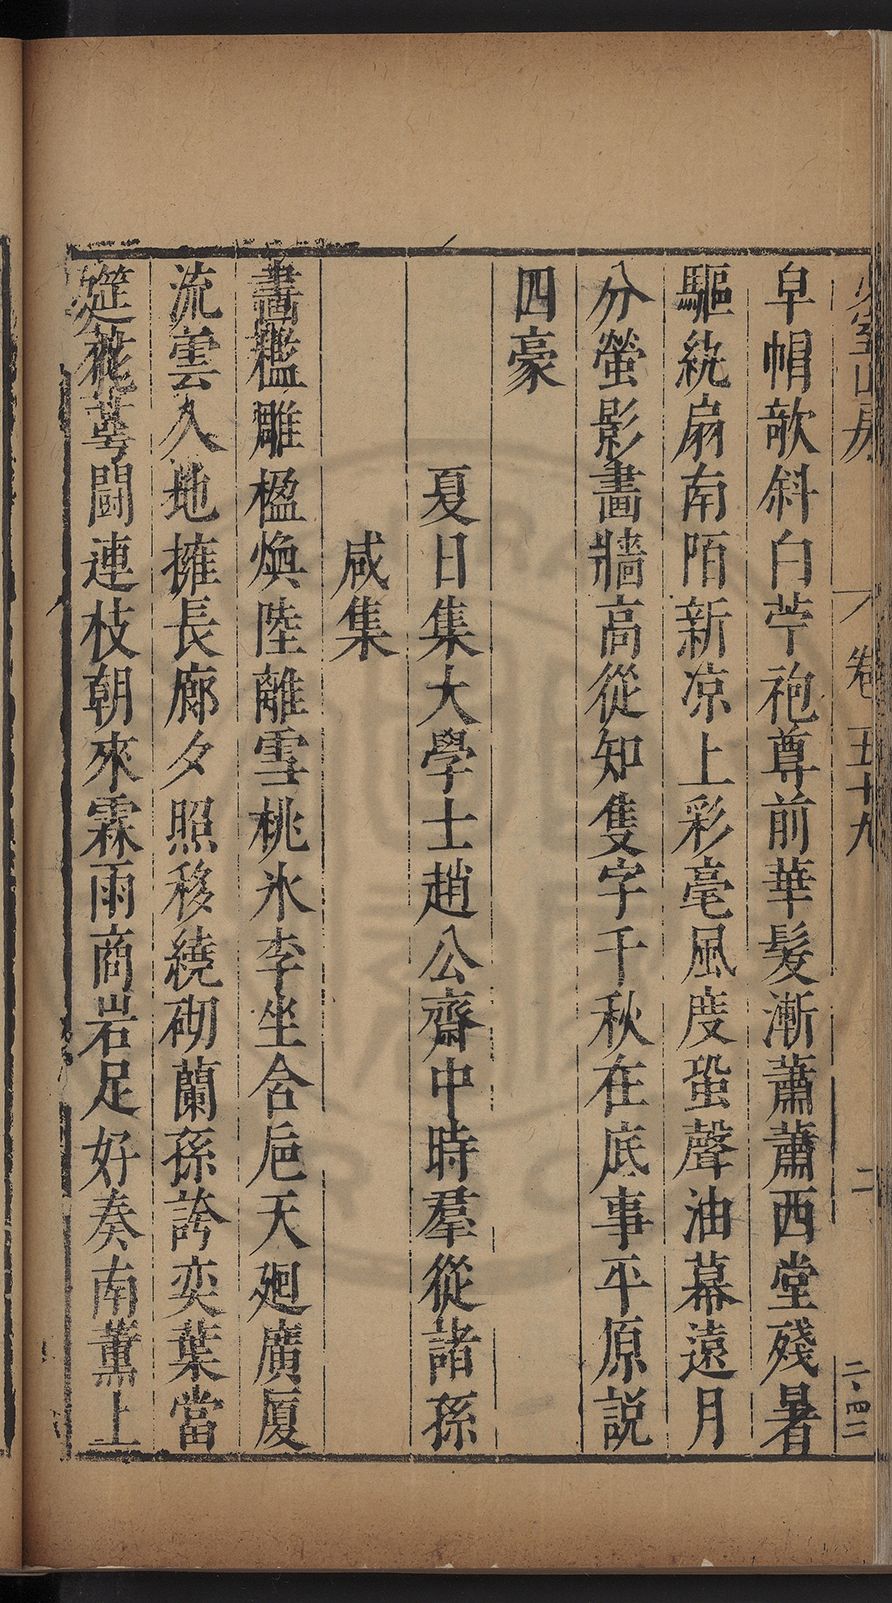 少室山房 卷五十九 二 二・四二
皁帽敧斜白苧袍尊前華髮漸蕭蕭西堂殘暑
驅紈扇南陌新凉上彩毫風度蛩聲油幕遠月
分螢影畫牆高從知隻字千秋在底事平原説
四豪
夏日集大學士趙公齋中時羣從諸孫
咸集
畵檻雕楹煥陸離雪桃氷李坐含巵天廻廣厦
流雲入地擁長廊夕照移繞砌蘭孫誇奕葉當
筵花萼鬪連枝朝來霖雨商岩足好奏南薰上